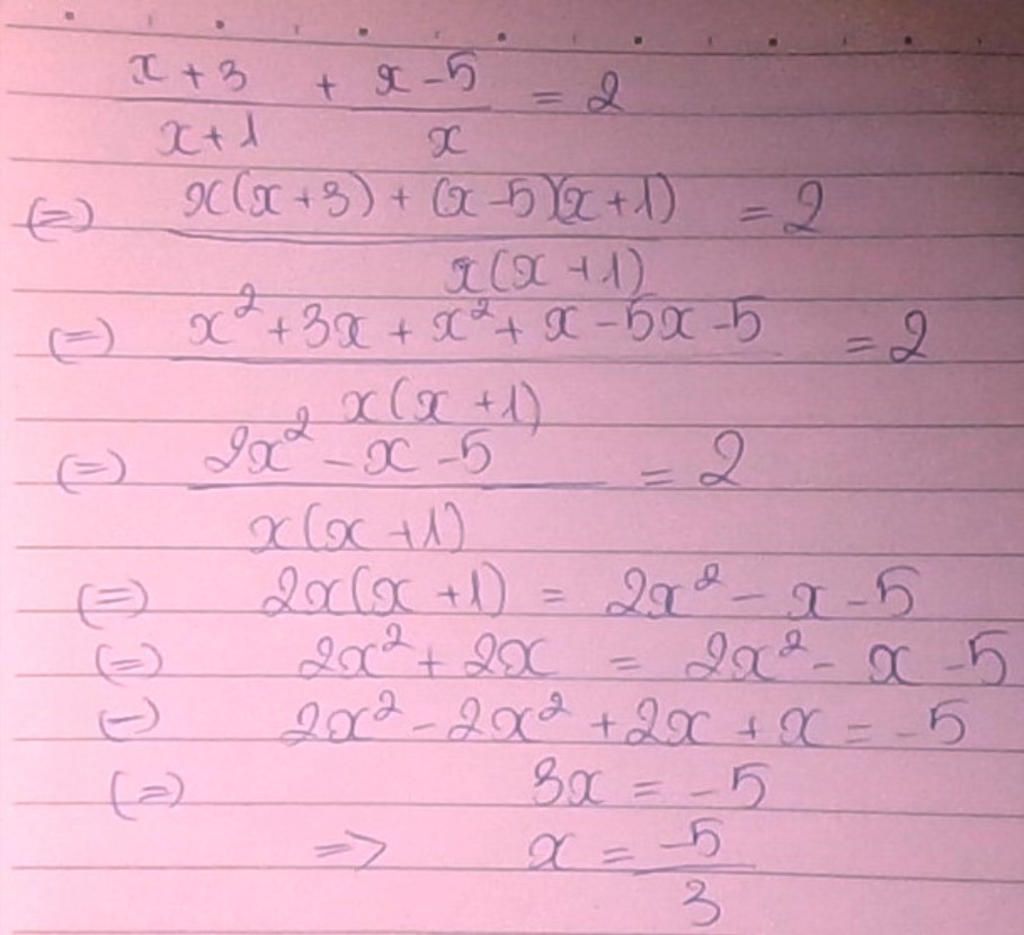 x + 3 / x + 1 + x - 5 / x = 2
(=) x(x + 3) + (x - 5)(x + 1) / x(x + 1) = 2
(=) x² + 3x + x² + x - 5x - 5 / x(x + 1) = 2
(=) 2x² - x - 5 / x(x + 1) = 2
(=) 2x(x + 1) = 2x² - x - 5
(=) 2x² + 2x = 2x² - x - 5
(-) 2x² - 2x² + 2x + x = -5
(=) 3x = -5
=> x = -5 / 3